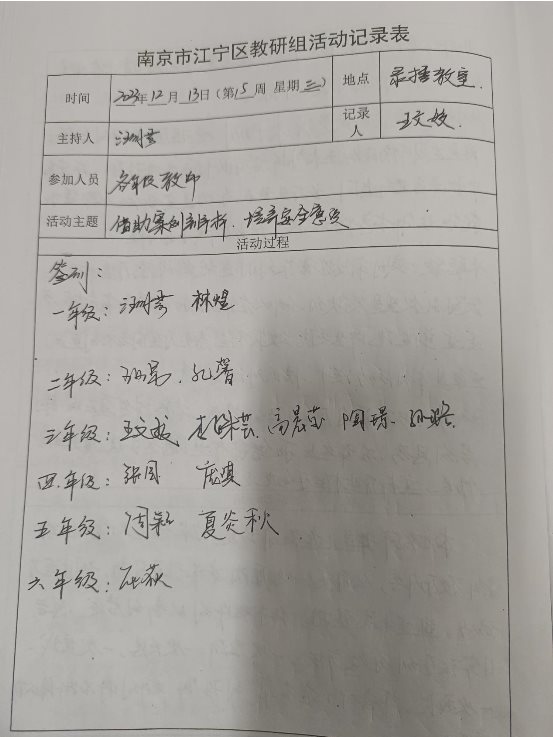 南京市江宁区教研组活动记录表
时间 2023年12月13日(第15周 星期三) 地点 录播教室
主持人 记录人 王文
参加人员 各年级教师
活动主题 借助案例剖析,培育安全意识
活动过程
签到:
一年级: 林煜
二年级: 孔馨
三年级: 高晨莹 陶璟
四年级: 张园 庞淇
五年级: 周 夏炎秋
六年级: